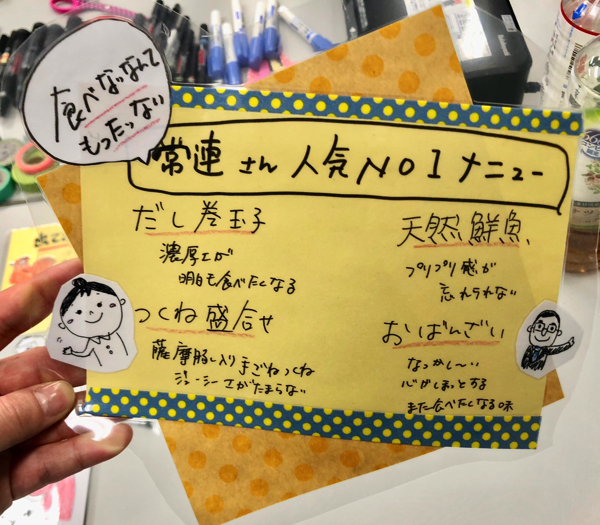 食べないなんて
もったいない
常連さん人気NO1メニュー
だし巻玉子
濃厚工が
明日も食べたくなる
つくね盛合せ
薩摩豚入り手ごねつくね
ジューシーさがたまらない
天然鮮魚
プリプリ感が
忘れられない
おばんざい
なつかし〜い
心がほっとする
また食べたくなる味